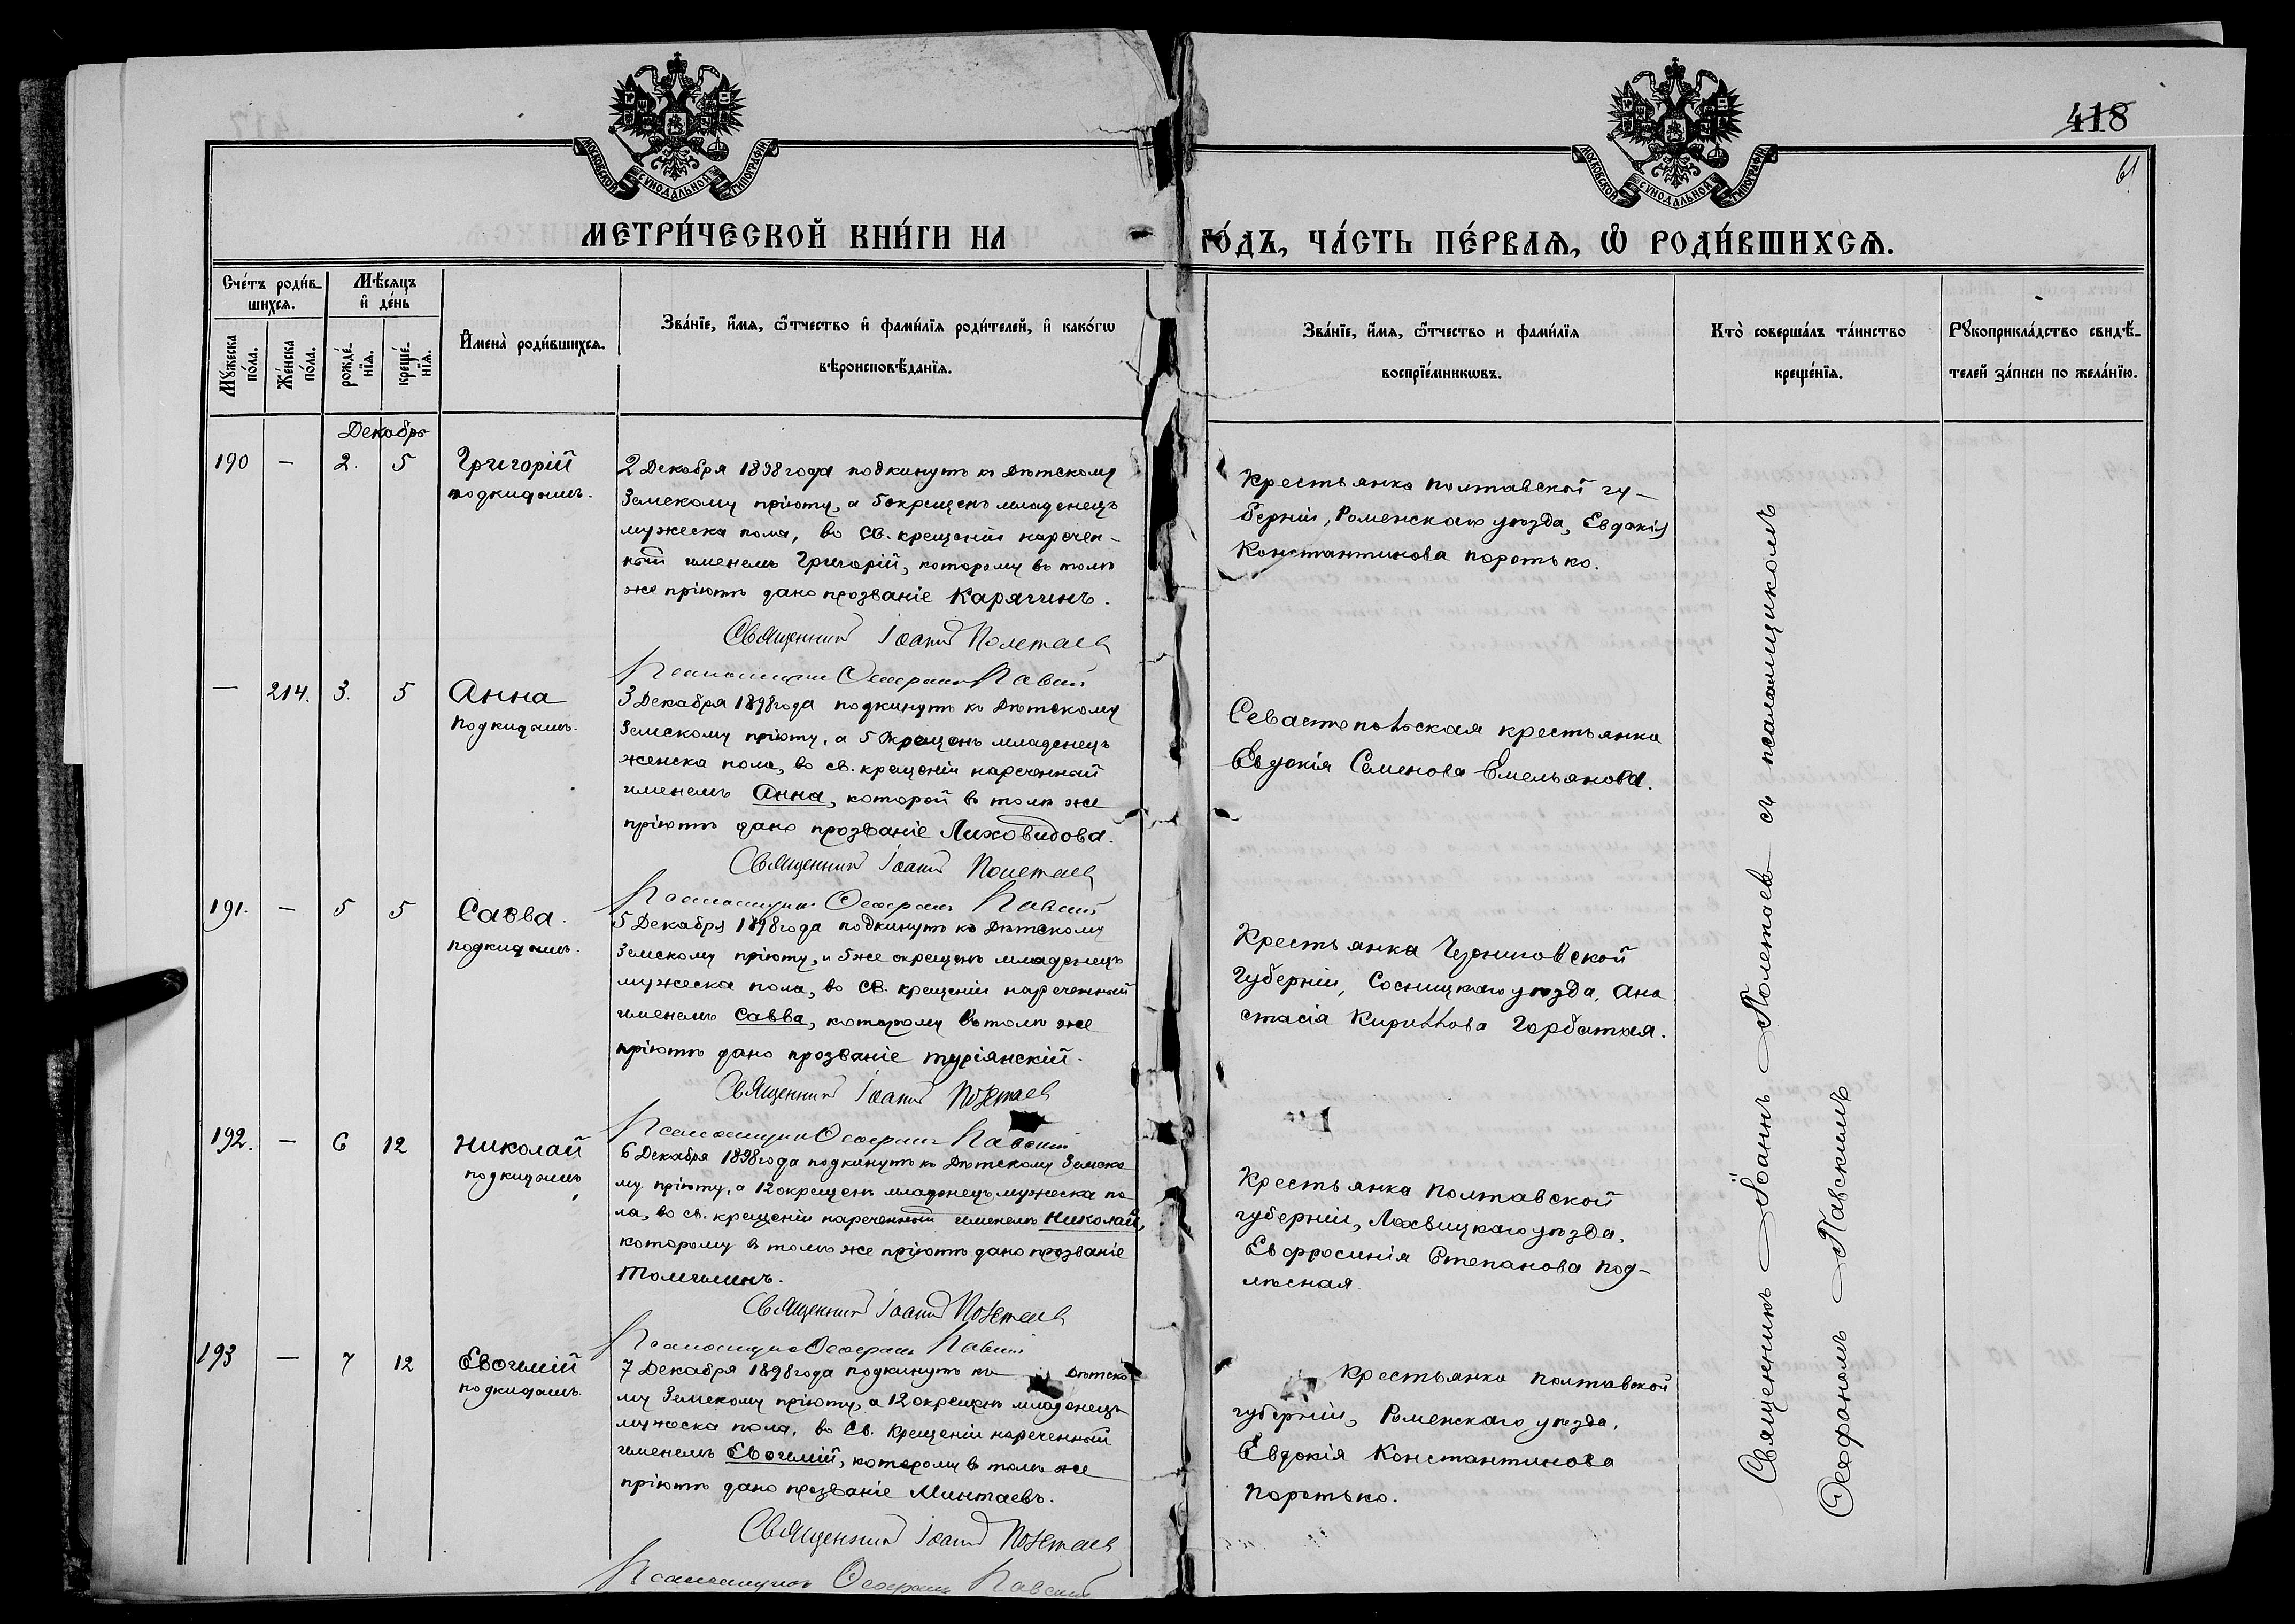 МОСКОВСКОЙ СѴНОДАЛЬНОЙ ТИПОГРАФІИ
МОСКОВСКОЙ СѴНОДАЛЬНОЙ ТИПОГРАФІИ
418
61
МЕТРИ́ЧЕСКОЙ КНИ́ГИ НА
ГО́ДЪ, ЧА́СТЬ ПЕ́РВАѦ, Ѡ РОДИ́ВШИХСѦ.
Сче́тъ роди́в-
шихся.
Мѣ́сяцъ
и҆ де́нь
Мꙋ́жеска
по́ла.
Же́нска
по́ла.
рожде́-
нїя.
креще́-
нїя.
И҆мена̀ роди́вшихся.
Зва́нїе, и҆́мя, ѻ҆́тчество и҆ фами́лїя роди́телей, и҆ како́гѡ
вѣроисповѣ́данїя.
Зва́нїе, и҆́мя, ѻ҆́тчество и фами́лїя
воспрїе́мникѡвъ.
Кто̀ соверша́лъ та́инство
креще́нїя.
Рꙋкоприкла́дство свидѣ́-
телей за́писи по жела́нїю.
Декабрь
190 — 2. 5 Григорій
подкидышъ.
2 Декабря 1898 года подкинутъ къ Дѣтскому
Земскому пріюту, а 5 окрещенъ младенецъ
мужеска пола, во св. крещеніи наречен-
ный именемъ Григорій, которому въ томъ
же пріютѣ дано прозваніе Карягинъ.
Священникъ Іоаннъ Полетаевъ
Псаломщикъ Ѳеофанъ Павскій
Крестьянка Полтавской гу-
берніи, Роменскаго уѣзда, Евдокія
Константинова Поротько.
— 214. 3. 5 Анна
подкидышъ.
3 Декабря 1898 года подкинутъ къ Дѣтскому
Земскому пріюту, а 5 окрещенъ младенецъ
женска пола, во св. крещеніи нареченный
именемъ Анна, которой въ томъ же
пріютѣ дано прозваніе Лиховидова.
Священникъ Іоаннъ Полетаевъ
Псаломщикъ Ѳеофанъ Павскій
Севастопольская крестьянка
Евдокія Семенова Емельянова.
191. — 5 5 Савва.
подкидышъ.
5 Декабря 1898 года подкинутъ къ Дѣтскому
Земскому пріюту, и 5 же окрещенъ младенецъ
мужеска пола, во св. крещеніи нареченный
именемъ Савва, которому въ томъ же
пріютѣ дано прозваніе Туріянскій.
Священникъ Іоаннъ Полетаевъ
Псаломщикъ Ѳеофанъ Павскій
Крестьянка Черниговской
Губерніи, Сосницкаго уѣзда, Ана
стасія Кириллова Горбатая.
192. — 6 12 Николай
подкидышъ
6 Декабря 1898 года подкинутъ къ Дѣтскому Земско
му пріюту, а 12 окрещенъ младенецъ мужеска по
ла, во св. крещеніи нареченный именемъ Николай,
которому въ томъ же пріютѣ дано прозваніе
Священникъ Іоаннъ Полетаевъ
Псаломщикъ Ѳеофанъ Павскій
Крестьянка Полтавской
губерніи, Лохвицкаго уѣзда,
Евфросинія Степанова Под-
лѣсная.
193 — 7 12 Евѳимій
подкидышъ.
7 Декабря 1898 года подкинутъ къ Дѣтско
му Земскому пріюту, а 12 окрещенъ младенецъ
мужеска пола, во Св. Крещеніи нареченный
именемъ Евѳимій, которому въ томъ же
пріютѣ дано прозваніе Минтаевъ.
Священникъ Іоаннъ Полетаевъ
Псаломщикъ Ѳеофанъ Павскій
Крестьянка Полтавской
губерніи, Роменскаго уѣзда,
Евдокія Константинова
Поротько.
Священникъ Іоаннъ Полетаевъ съ псаломщикомъ
Ѳеофаномъ Павскимъ